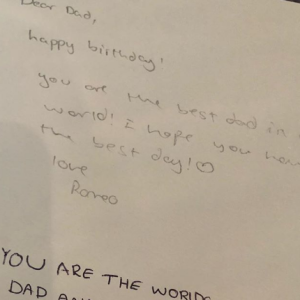 Dear Dad,
happy birthday!
you are the best dad in
world! i hope you have
the best day!♡
love
Romeo
YOU ARE THE WORLD
DAD AN